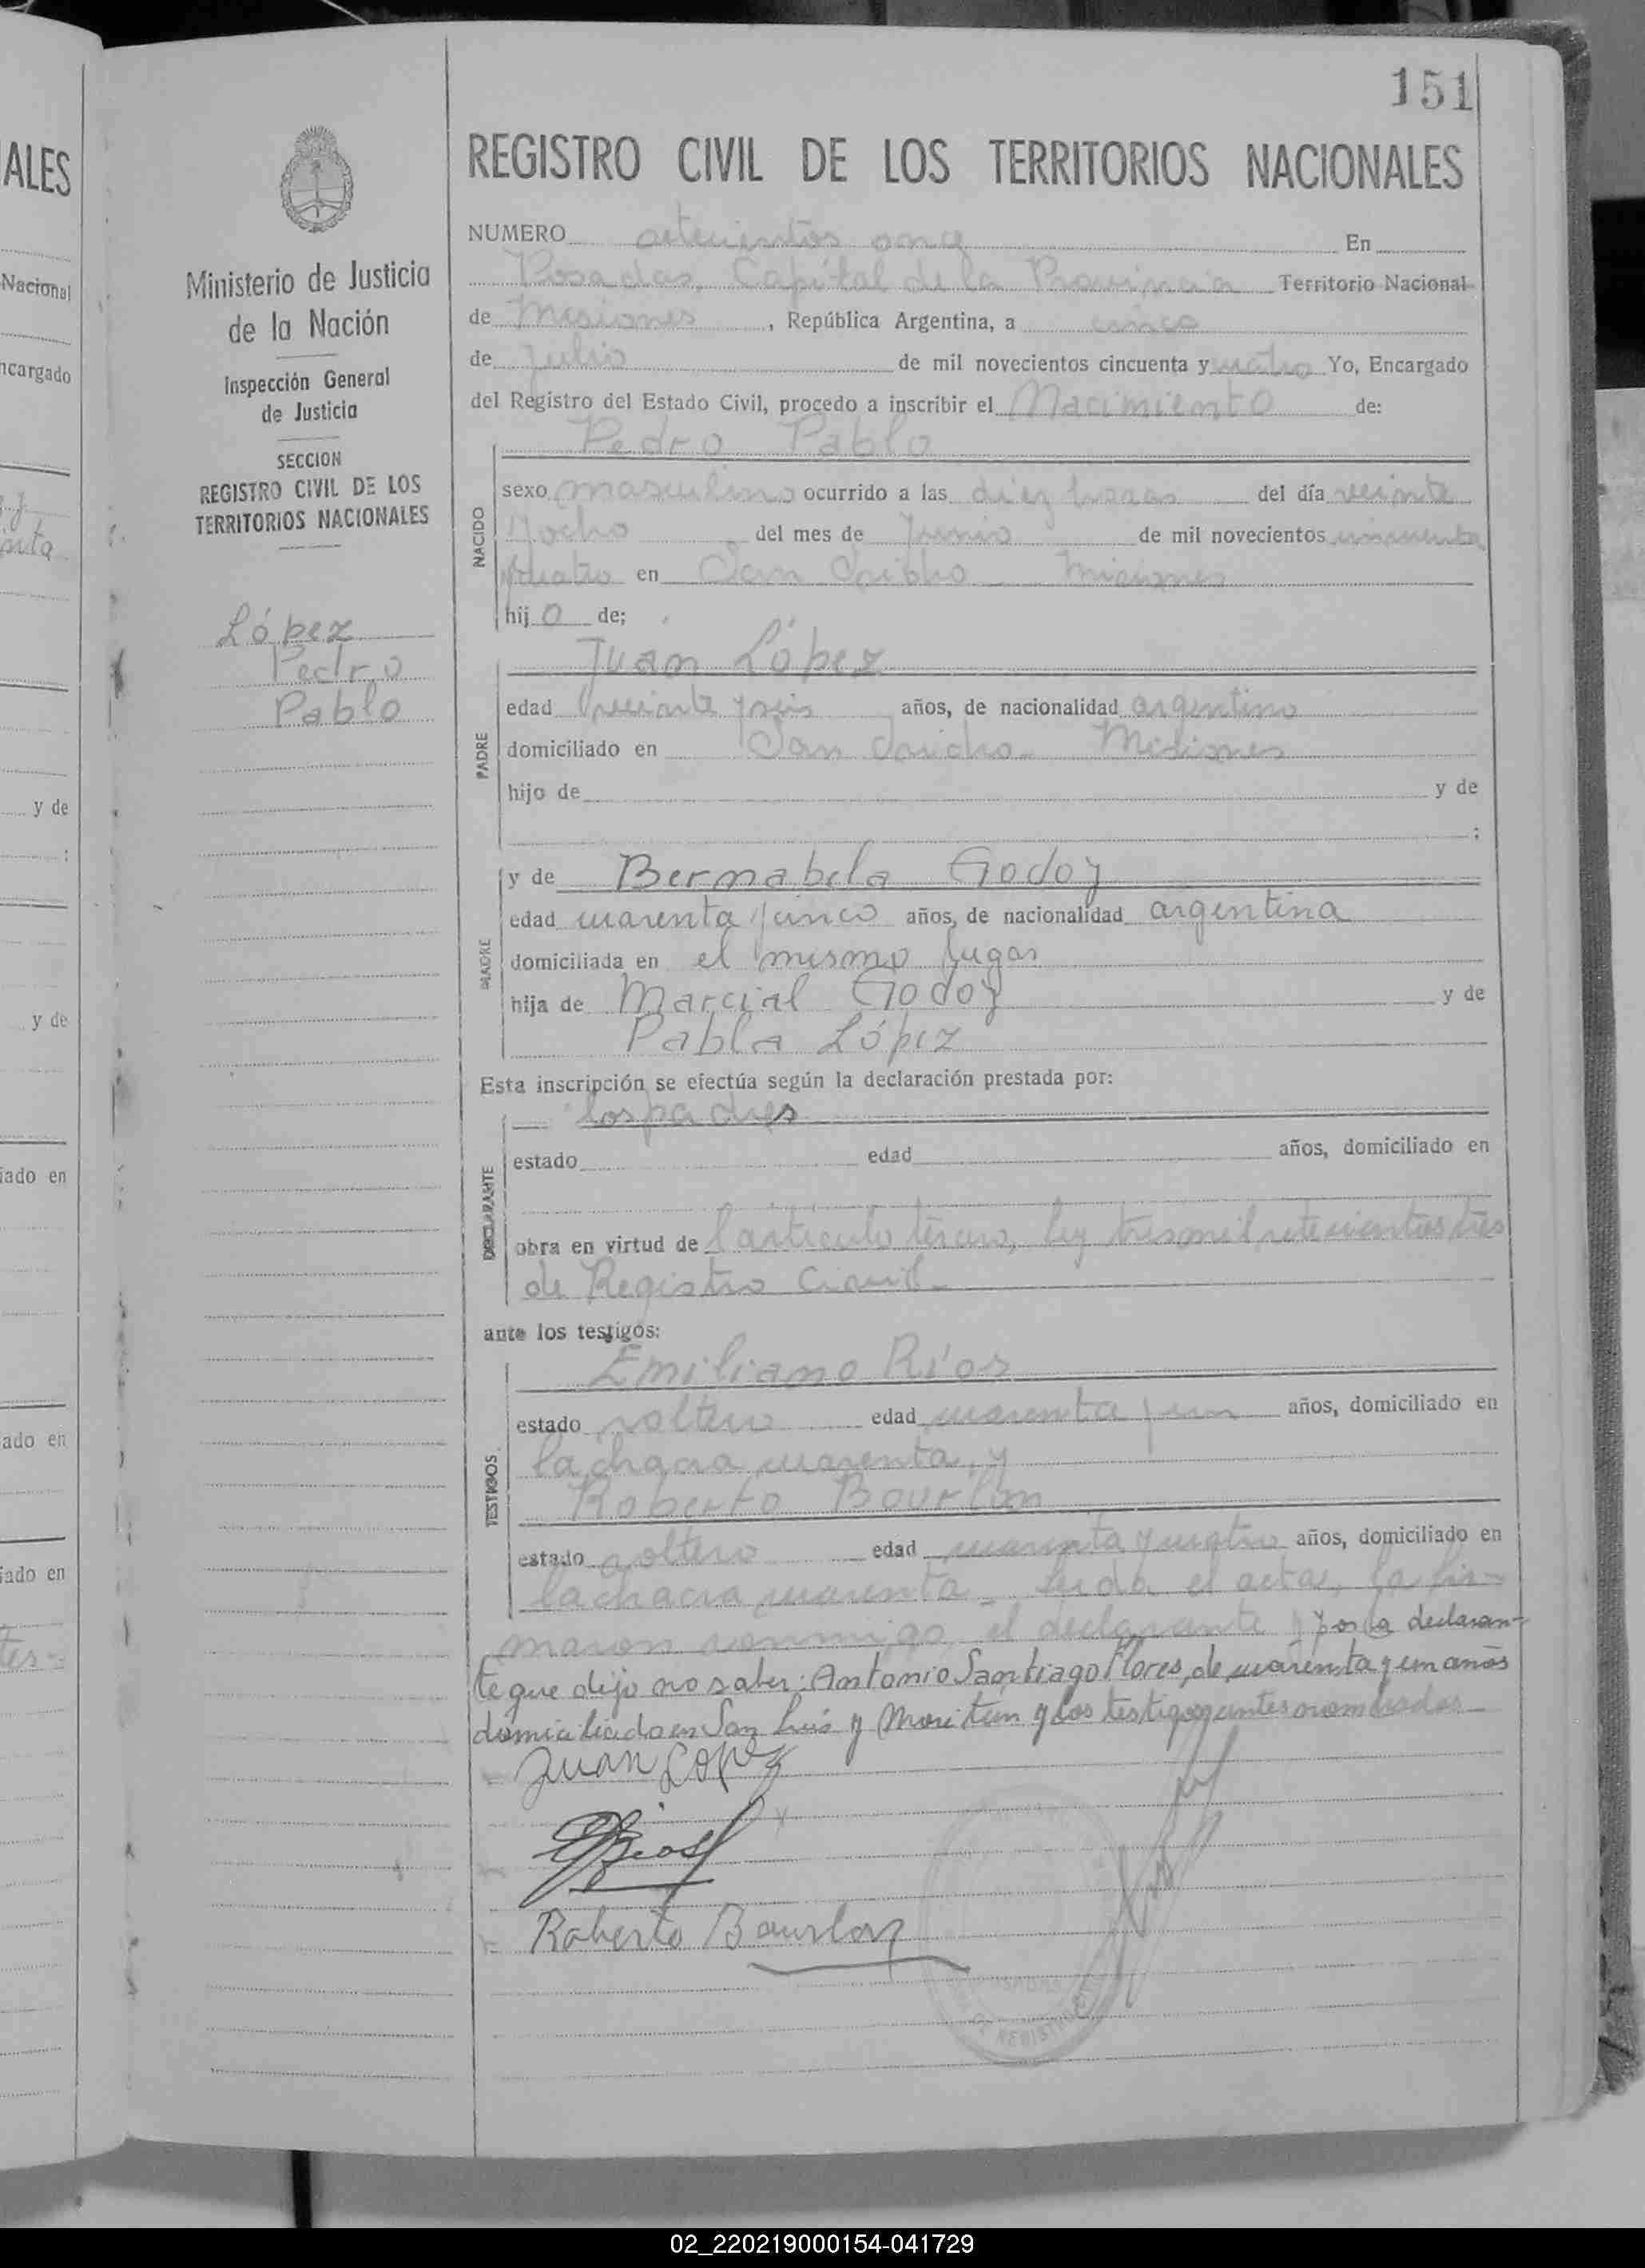 151
ALES
Nacional
ncargado
y de
y de
iado en
ado en
iado en
Ministerio de Justicia
de la Nación
Inspección General
de Justicia
SECCION
REGISTRO CIVIL DE LOS
TERRITORIOS NACIONALES
López
Pedro
Pablo
REGISTRO CIVIL DE LOS TERRITORIOS NACIONALES
NUMERO setecientos once En
Posadas, Capital de la Provincia Territorio Nacional
de Misiones, República Argentina, a cinco
de Julio de mil novecientos cincuenta y cuatro Yo, Encargado
del Registro del Estado Civil, procedo a inscribir el Nacimiento de:
Pedro Pablo
NACIDO
sexo masculino ocurrido a las diez horas del día veinte
y ocho del mes de Junio de mil novecientos cincuenta
y cuatro en San Isidro Misiones
hij o de;
Juan López
PADRE
edad veinte y seis años, de nacionalidad argentino
domiciliado en San Isidro Misiones
hijo de y de
;
MADRE
y de Bernabela Godoy
edad cuarenta y cinco años, de nacionalidad argentina
domiciliada en el mismo lugar
hija de Marcial Godoy y de
Pabla López
Esta inscripción se efectúa según la declaración prestada por:
los padres
DECLARANTE
estado edad años, domiciliado en
obra en virtud de l artículo tercero, ley tres mil setecientos tres
de Registro Civil.
ante los testigos:
TESTIGOS
Emiliano Ríos
estado soltero edad cuarenta y un años, domiciliado en
la chacra cuarenta, y
Roberto Bourlon
estado soltero edad cuarenta y cuatro años, domiciliado en
la chacra cuarenta. Leida el acta, la fir-
maron conmigo el declarante y por la declaran-
te que dijo no saber: Antonio Santiago Flores, de cuarenta y un años
domiciliado en San Luis y y los testigos antes nombrados
Juan Lopez
ERios
Roberto Bourlon
02_220219000154-041729